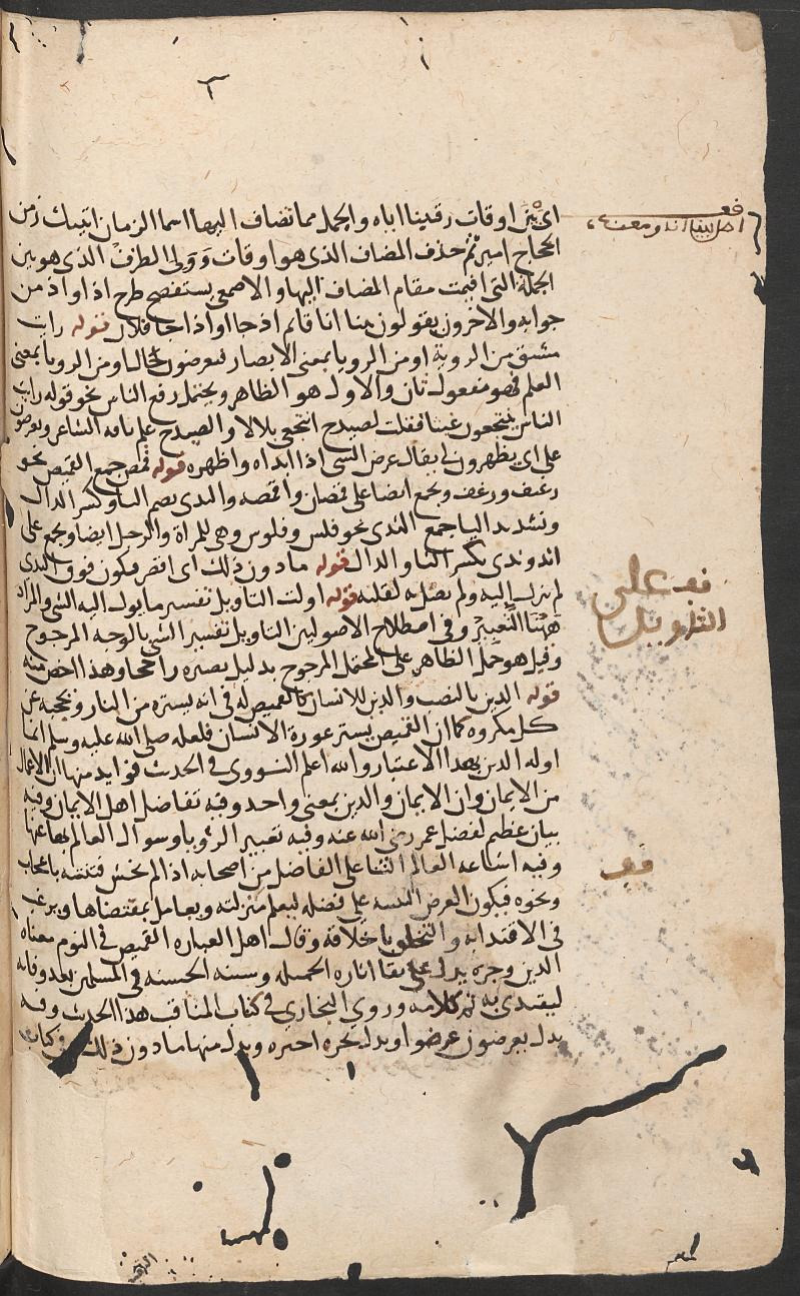 اى بين اوقات رقبتنا اياه والجمل مما تضاف اليها اسما الزمان اتيتك زمن
الحجاج امير ثم حذف المضاف الذى هو اوقات وولى الظرف الذى هو بين
الجملة التى اقيمت مقام المضاف اليها والاصمعى يستفصح طرح اذ او اذ من
جوابه والاخرون يقولون بينا انا قائم اذ جا او اذا جا فلان قوله رايت
مشتق من الروية او من الرويا بمعنى الابصار فيعرضون حال او من الرويا بمعنى
العلم فهو مفعول ثان والاول هو الظاهر ويحتمل رفع الناس نحو قوله رايت
الناس ينتجعون غيثا فقلت لصيدح انتجعى بلالا والصيدح علم ناقه الشاعر ويعرضون
على اى يظهرون لى يقال عرض الشى اذا ابداه واظهره قوله قمص جمع القميص نحو
رغيف ورغف ويجمع ايضا على قمصان واقمصه والثدى بضم الثا وكسر الدال
وتشديد اليا جمع الثدى نحو فلس وفلوس وهى للمراة والرجل ايضا ويجمع على
اثد وثدى بكسر الثا والدال قوله ما دون ذلك اى اقصر فيكون فوق الثدى
لم ينزل اليه ولم يصل به لقلته قوله اولت التاويل تفسير ما يول اليه الشى والمراد
ههنا التعبير وفى اصطلاح الاصوليين التاويل تفسير الشى بالوجه المرجوح
وقيل هو حمل الظاهر على المحتمل المرجوح بدليل يصيره راجحا وهذا اخص منه
قوله الدين بالنصب والدين للانسان كالقميص له فى انه يستره من النار ويحجبه عن
كل مكروه كما ان القميص يستر عورة الانسان فلعله صلى الله عليه وسلم انما
اوله الدين بهذا الاعتبار والله اعلم النووى فى الحديث فوايد منها ان الاعمال
من الايمان وان الايمان والدين بمعنى واحد وفيه تفاضل اهل الايمان وفيه
بيان عظيم لفضل عمر رضى الله عنه وفيه تعبير الرؤيا وسوال العالم بها عنها
وفيه اشاعه العالم الثنا على الفاضل من اصحابه اذا لم يخش فتنته باعجاب
ونحوه فيكون الغرض التنبيه على فضله ليعلم منزلته ويعامل بمقتضاها ويرغب
فى الاقتدا به والتخلق باخلاقه وقال اهل العباره القميص فى النوم معناه
الدين وجره يدل على بقا اثاره الجميله وسننه الحسنه فى المسلمين بعد وفاته
ليقتدى به تم كلامه وروى البخارى فى كتاب المناقب هذا الحديث وفيه
بدل يعرضون عرضوا وبدل يجره اجتره وبدل منها ما دون ذلك كتاب
قف على
التاويل
قف